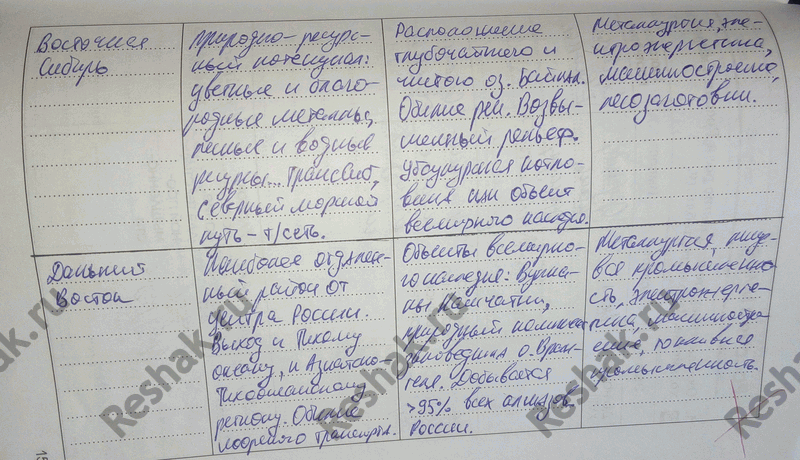 Восточная
Сибирь
Природно-ресурс-
ный потенциал:
цветные и благо-
родные металлы,
лесные и водные
ресурсы... Транссиб,
Северный морской
путь - т/сеть.
Расположение
глубочайшего и
чистого оз. Байкал.
Обилие рек. Возвы-
шенный рельеф.
Убсунурская котло-
вина или объект
всемирного наслед.
Металлургия, эле-
ктроэнергетика,
машиностроение,
лесозаготовки.
Дальний
Восток
Наиболее отдален-
ный район от
центра России.
Выход к Тихому
океану, и Азиатско-
Тихоокеанскому
региону. Обилие
морского транспорта.
Объекты всемирно-
го наследия: Вулка-
ны Камчатки,
природный комплекс
заповедника о. Вран-
геля. Добывается
>95% всех алмазов
России.
Металлургия, пище-
вая промышленно
сть, электроэнерге-
тика, машиностро-
ение, топливная
промышленность.
15
Reshak.ru
Reshak.ru
Reshak.ru
Reshak.ru